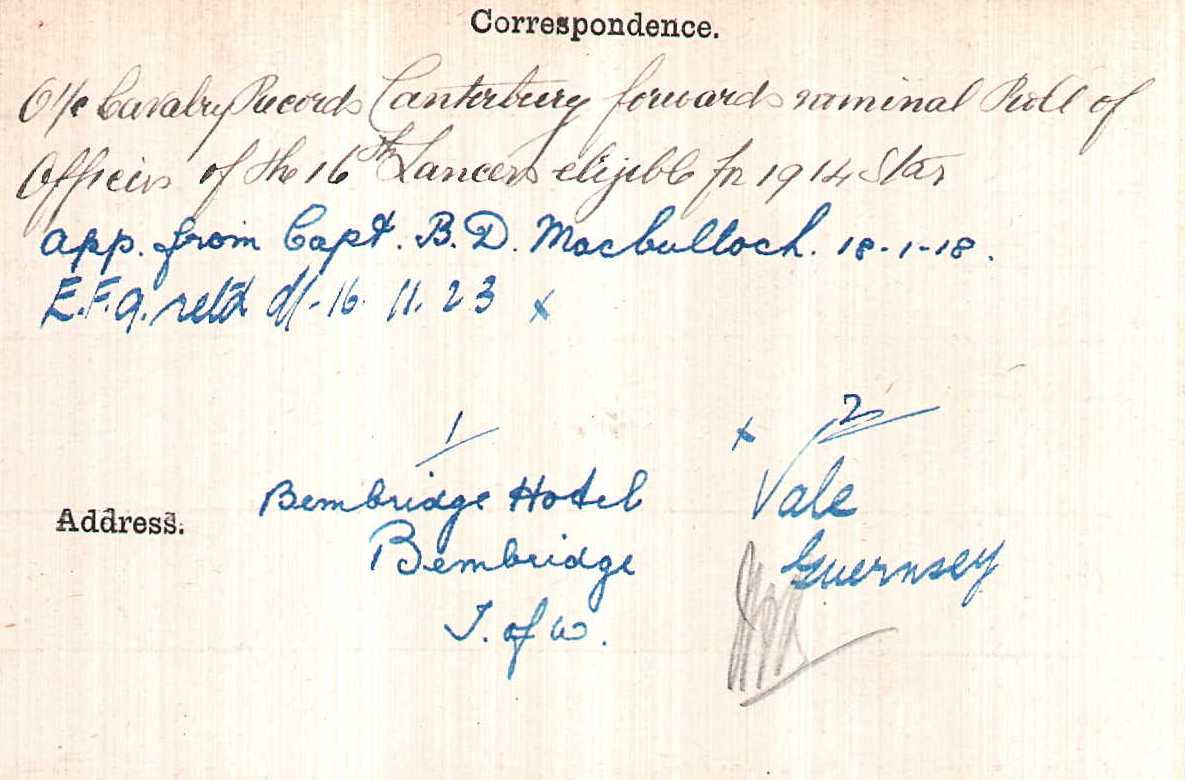 Correspondence.
O i/c Cavalry Records Canterbury forwards nominal Roll of
Officers of the 16th Lancers eligible for 1914 Star
app. from Capt. B. D. Macbulloch. 18-1-18.
E.F.9. retd d/-16. 11. 23 x
1 x 2
Bembridge Hotel Vale
Address.
Bembridge Guernsey
I. of W.